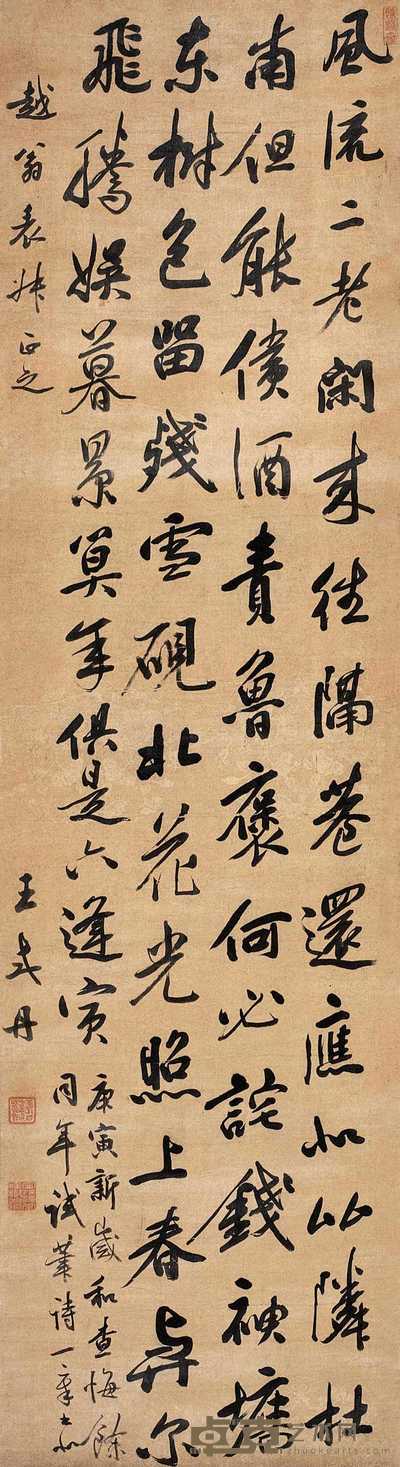 風流二老閑來往隔巷還應似比隣杜
甫但能償酒責魯褒何必詫錢神牆
東樹色留殘雪硯北花光照上春與爾
飛騰娛暮景算年俱是六逢寅
庚寅新歲和查悔餘
同年試筆詩一章書似
越翁表叔正之
王式丹
卓克艺术网